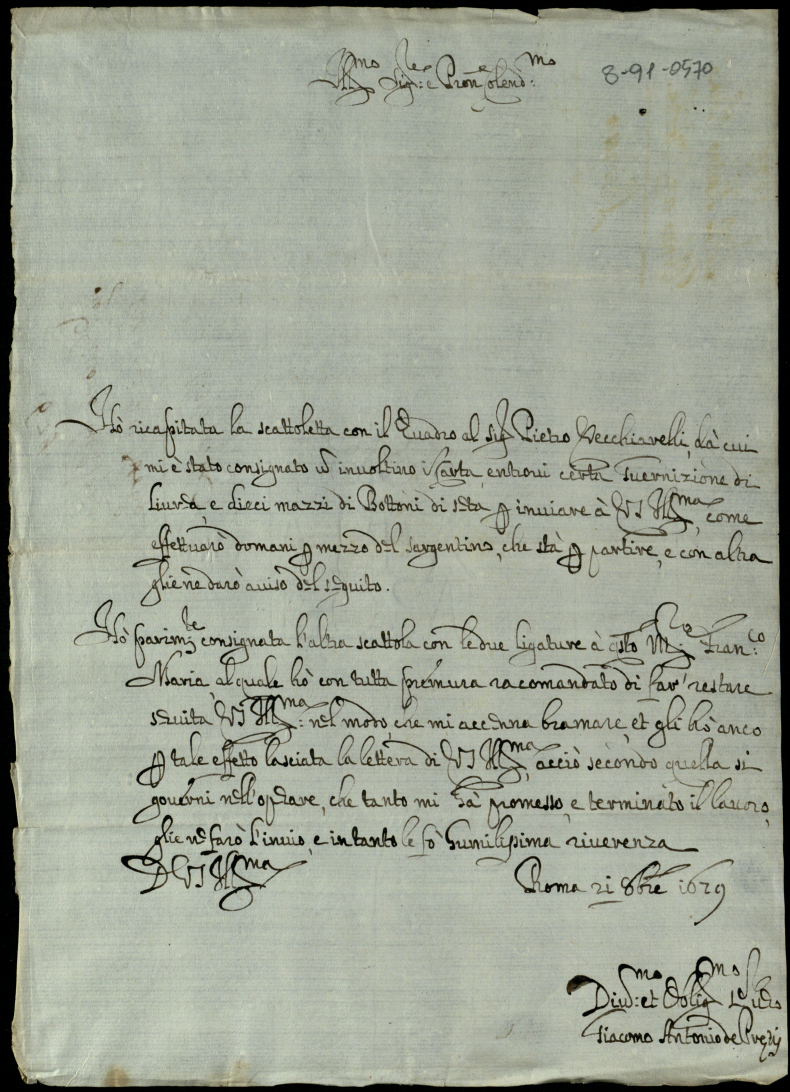 Ill.mo Sig.re e Pron Colend.mo
8-91-0570
Hò ricapitata la scattoletta con il Quadro al Sig.r Pietro Vecchiarelli, dà cui
mi è stato consignato un involtino di Carta, entroui certa Guernizione di
liurea, e dieci mazzi di Bottoni di seta p inuiare à VS Ill.ma, come
effettuarò domani p mezzo del sargentino, che stà p partire, e con altra
gliene darò auiso del seguito.
Hò parim.te consignata l'altra scattola con le due ligature à qsto M.re Fran.co
Maria, al quale hò con tutta premura racomandato di far' restare
seruita VS Ill.ma: nel modo, che mi accenna bramare, et gli hò anco
p tale effetto lasciata la lettera di VS Ill.ma, acciò secondo quella si
gouerni nell'oprare, che tanto mi hà promesso, e terminato il lauoro,
gliene farò l'inuio, e in tanto le fò humilissima riuerenza
D VS Ill.ma
Roma 21 8bre 1679
Diu.mo: et Oblig.mo se
Giacomo Antonio de